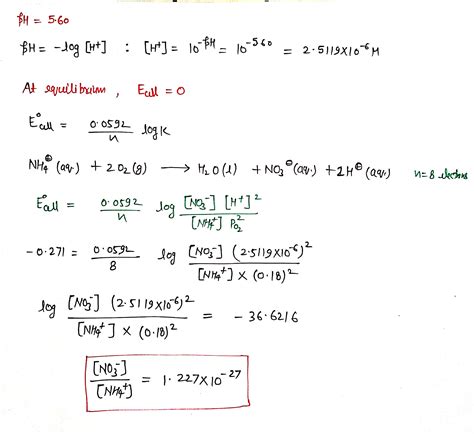 pH = 5.60
pH = -log [H⁺] : [H⁺] = 10^-pH = 10^-5.60 = 2.5119×10⁻⁶ M
At equilibrium , Ecell = 0
E°cell = 0.0592/n log K
NH₄⊕ (aq.) + 2O₂(g) ⟶ H₂O(l) + NO₃⊖(aq.) + 2H⊕(aq.) n=8 electrons
E°cell = 0.0592/n log [NO₃⁻] [H⁺]²/[NH₄⁺] P²O₂
-0.271 = 0.0592/8 log [NO₃⁻] (2.5119×10⁻⁶)²/[NH₄⁺] × (0.18)²
log [NO₃⁻] (2.5119×10⁻⁶)²/[NH₄⁺] × (0.18)² = -36.6216
[NO₃⁻]/[NH₄⁺] = 1.227×10⁻²⁷